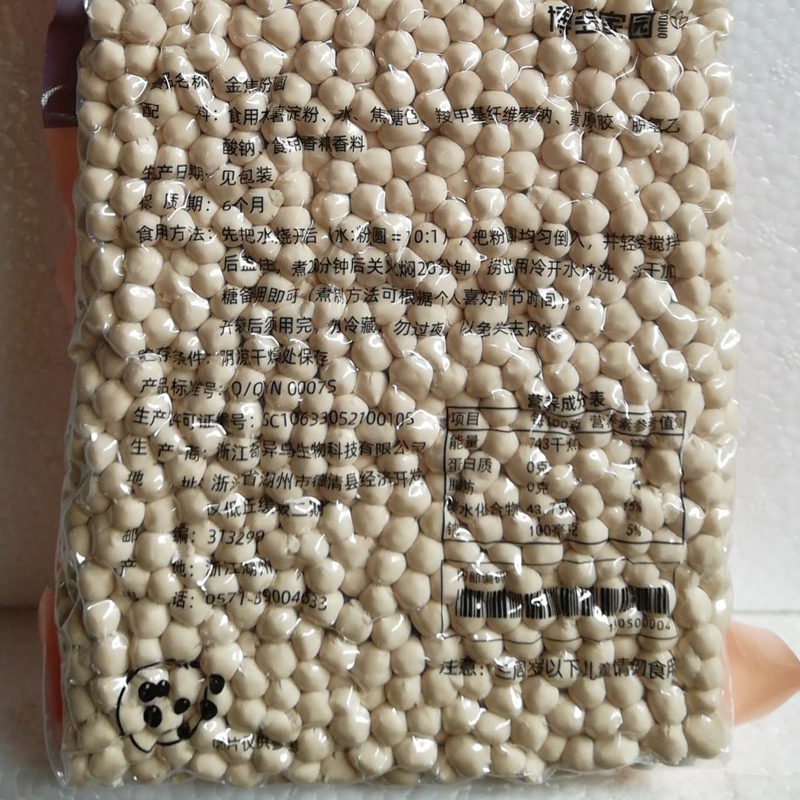 家园
名称：金焦粉圆
配 料：食用木薯淀粉、水、焦糖色、羧甲基纤维素钠、黄原胶、脱氢乙
酸钠、食用香精香料
生产日期：见包装
保 质 期：6个月
食用方法：先把水烧开后（水:粉圆=10:1），把粉圆均匀倒入，并轻轻搅拌
后盖住，煮20分钟后关火焖20分钟，捞出用冷开水冲洗，加
糖备用即可（煮制方法可根据个人喜好调节时间）。
开袋后须用完，勿冷藏，勿过夜，以免失去风味。
贮存条件：阴凉干燥处保存
产品标准号：Q/QYN 0007S
生产许可证编号：SC10633052100105
生 产 商：浙江奇异鸟生物科技有限公司
地 址：浙江省湖州市德清县经济开发
邮 编：313299
产 地：浙江湖州
电 话：0571-89004633
营养成分表
项目 每100克 营养素参考值%
能量 743千焦 9%
蛋白质 0克 0%
脂肪 0克
碳水化合物 43.7克
钠 100毫克 5%
内部编码
注意：三周岁以下儿童请勿食用
图片仅供参考